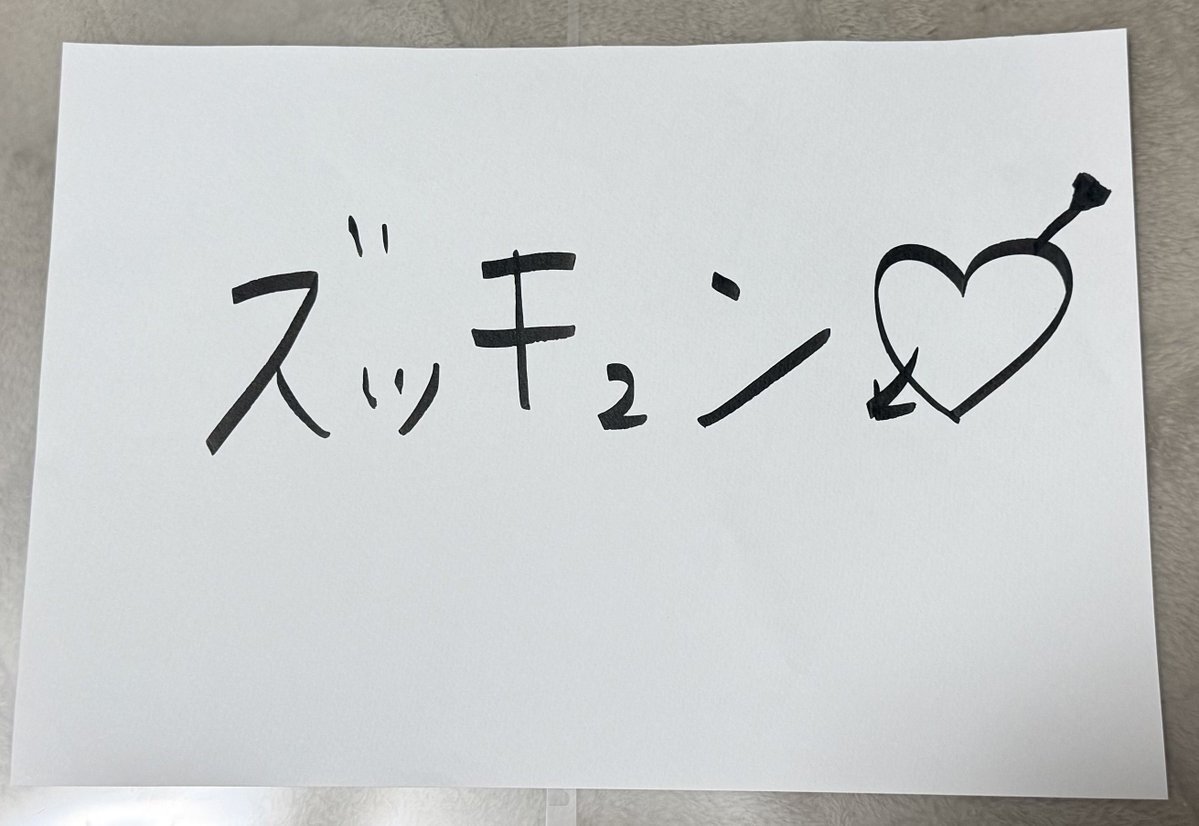 ズッキュン💘